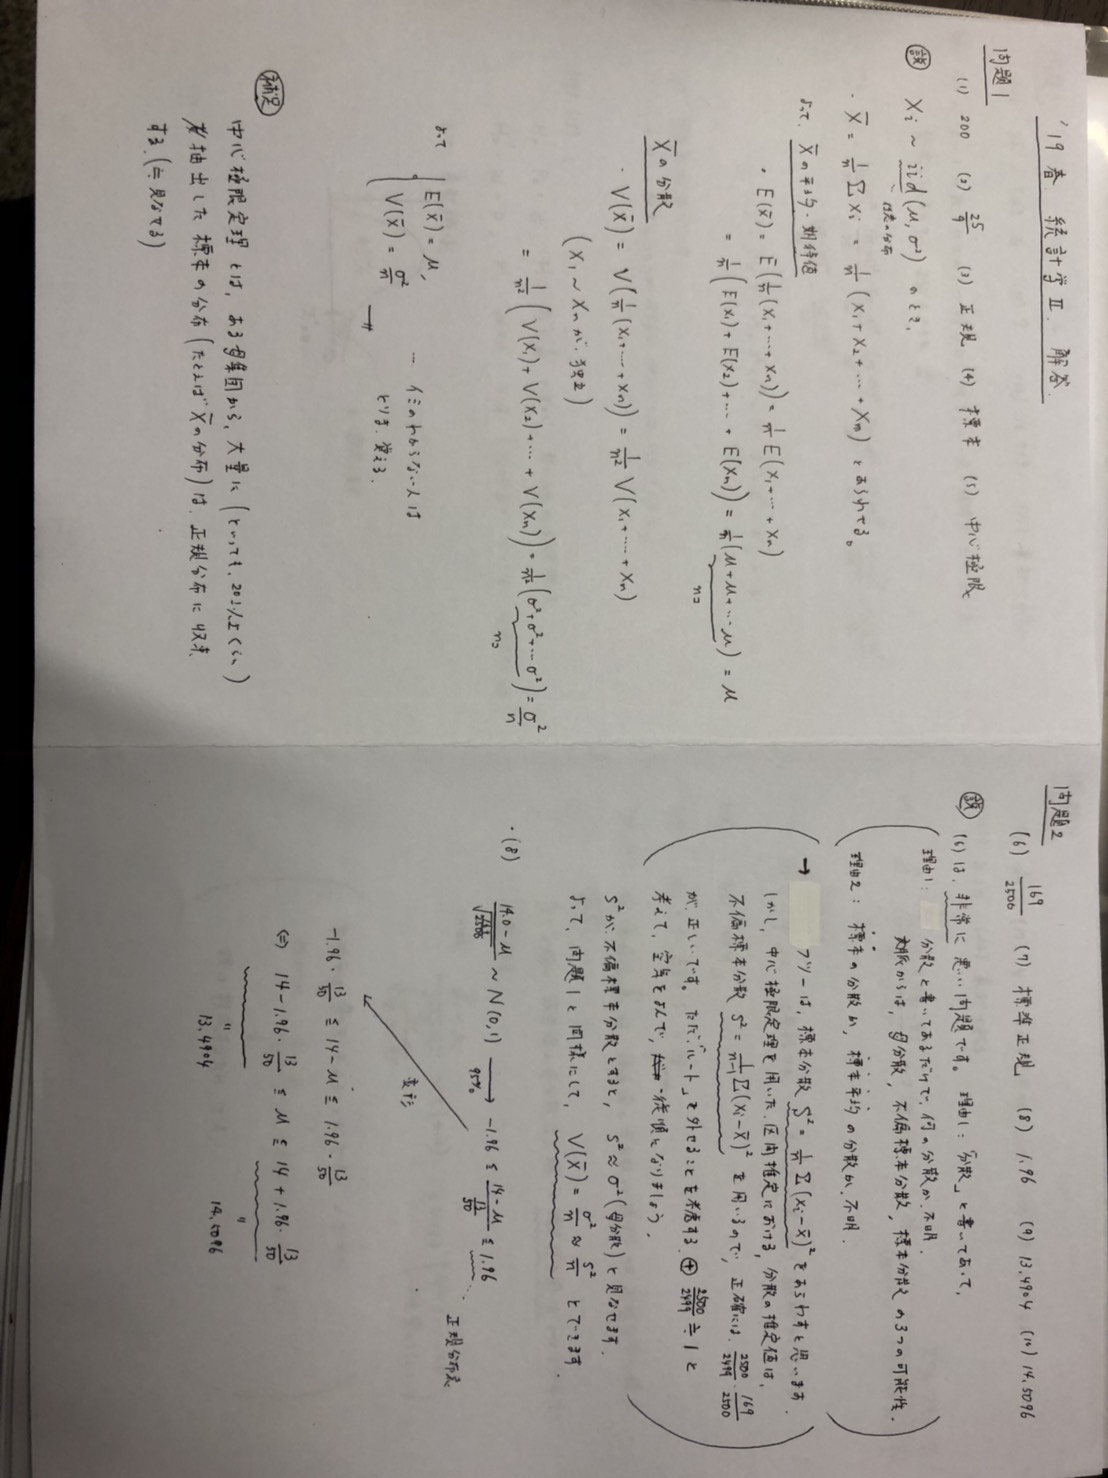 '19 春 統計学II. 解答.
問題1
(1) 200 (2) 25/9 (3) 正規 (4) 標本 (5) 中心極限
説 Xi ~ iid(μ, σ²) のとき、
・X̄ = 1/n ΣXi = 1/n (X1 + X2 + … + Xn) とあらわせる。
よって、X̄の平均・期待値
・E(X̄) = E(1/n(X1+…+Xn)) = 1/n E(X1+…+Xn)
= 1/n (E(X1) + E(X2) + … + E(Xn)) = 1/n (μ+μ+…μ) = μ
nコ
X̄の分散
・V(X̄) = V(1/n(X1+…+Xn)) = 1/n² V(X1+…+Xn)
(X1~Xnが独立)
= 1/n² (V(X1) + V(X2) + … + V(Xn)) = 1/n² (σ²+σ²+…σ²) = σ²/n
nコ
よって E(X̄) = μ, … イミのわからない人は
V(X̄) = σ²/n とりま、覚える.
補足
中心極限定理とは、ある母集団から、大量に(といっても、20以上くらい)
抽出した標本の分布(たとえばX̄の分布)は、正規分布に収束
する.(≒見なせる)
問題2
(6) 169/2500 (7) 標準正規 (8) 1.96 (9) 13.4904 (10) 14.5096
説 (6)は、非常に悪い問題です。理由1:「分散」と書いてあって、
理由1: 分散と書いてあるだけで、何の分散か不明.
からは、母分散, 不偏標本分散, 標本分散の3つの可能性.
理由2: 標本の分散か、標本平均の分散か、不明.
→ フツーは、標本分散 S² = 1/n Σ(Xi-X̄)² をあらわすと思います.
しかし、中心極限定理を用いた、区間推定における、分散の推定値は、
不偏標本分散 S² = 1/n-1 Σ(Xi-X̄)² を用いるので、正確には、2500/2499 · 169/2500
が、正しいです。ただ「ルート」を外せることを考慮する ⊕ 2500/2499 ≒ 1 と
考えて、空気をよんで、従順になりましょう.
S²が、不偏標本分散とすると、S² ≈ σ²(母分散)と見なせます.
よって、問題1と同様にして、V(X̄) = σ²/n ≈ S²/n とできます.
・(8)
14.0-μ/√169/2500 ~ N(0,1) → 95% -1.96 ≦ 14-μ/13/50 ≦ 1.96 … 正規分布表
変形
-1.96・13/50 ≦ 14-μ ≦ 1.96・13/50
⇔ 14-1.96・13/50 ≦ μ ≦ 14+1.96・13/50
13.4904 14.5096